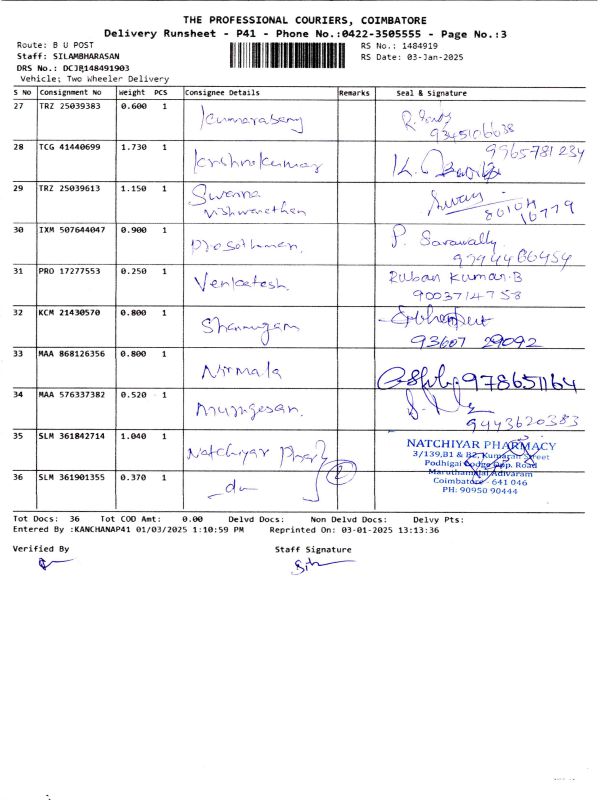 THE PROFESSIONAL COURIERS, COIMBATORE
Delivery Runsheet - P41 - Phone No.:0422-3505555 - Page No.:3
Route: B U POST
RS No.: 1484919
Staff: SILAMBHARASAN
RS Date: 03-Jan-2025
DRS No.: DCJP148491903
Vehicle; Two Wheeler Delivery
S No Consignment No Weight PCS Consignee Details Remarks Seal & Signature
27 TRZ 25039383 0.600 1 Kumarasamy
28 TCG 41440699 1.730 1 Krishnakumar 9965781234
29 TRZ 25039613 1.150 1 Swarna
Vishwanathan
30 IXM 507644047 0.900 1 P. Sarawally
31 PRO 17277553 0.250 1 Venkatesh. Ruban Kumar.B
9003714758
32 KCM 21430570 0.800 1 Shanmugam
93607 29092
33 MAA 868126356 0.800 1 Nirmala
34 MAA 576337382 0.520 1 Murugesan.
9443620383
35 SLM 361842714 1.040 1 Natchiyar Phar
36 SLM 361901355 0.370 1 -do 2
NATCHIYAR PHARMACY
3/139,B1 & B2, Kumaran Street
Podhigai Lodge Opp. Road
Maruthamalai Adivaram
Coimbatore - 641 046
PH: 90950 90444
Tot Docs: 36 Tot COD Amt: 0.00 Delvd Docs: Non Delvd Docs: Delvy Pts:
Entered By :KANCHANAP41 01/03/2025 1:10:59 PM Reprinted On: 03-01-2025 13:13:36
Verified By Staff Signature